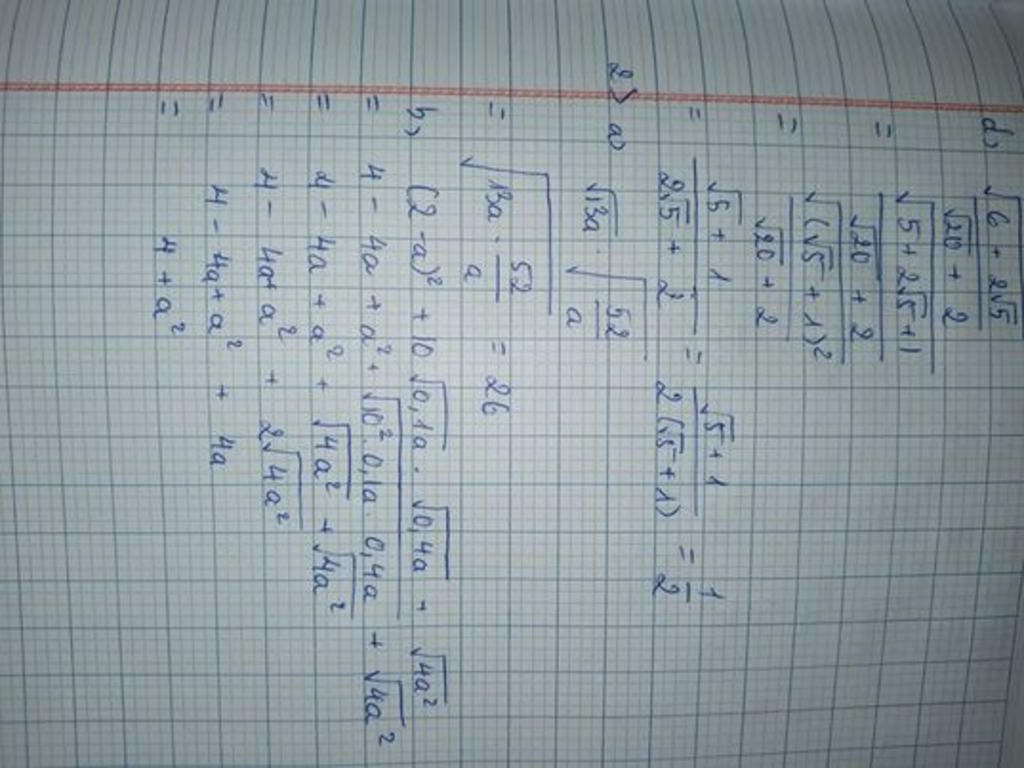 d) √(6 + 2√5) / (√20 + 2)
= √(5 + 2√5 + 1) / (√20 + 2)
= √((√5 + 1)²) / (√20 + 2)
= (√5 + 1) / (2√5 + 2) = (√5 + 1) / (2(√5 + 1)) = 1/2
2) a) √13a · √(52/a)
= √(13a · 52/a) = 26
b) (2 - a)² + 10√0,1a · √0,4a + √4a²
= 4 - 4a + a² + √(10² · 0,1a · 0,4a) + √4a²
= 4 - 4a + a² + √4a² + √4a²
= 4 - 4a + a² + 2√4a²
= 4 - 4a + a² + 4a
= 4 + a²